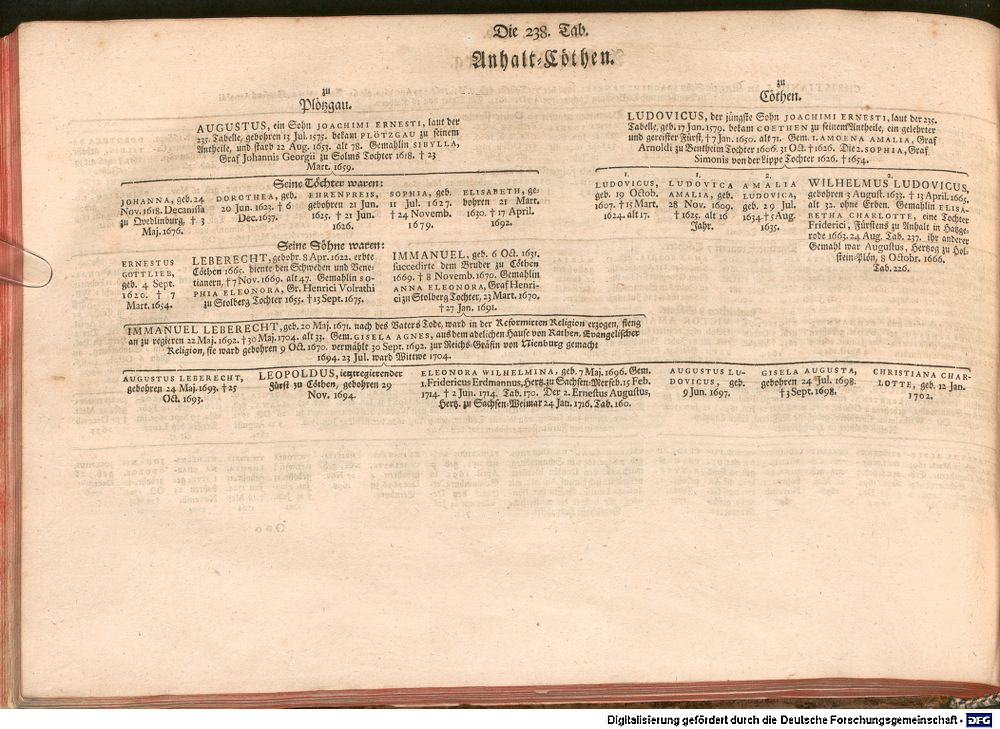 Die 238. Tab.
Anhalt-Cöthen.
zu
Plötzgau.
AUGUSTUS, ein Sohn JOACHIMI ERNESTI, laut der
235. Tabelle, gebohren 13 Jul. 1575. bekam PLÖTZGAU zu seinem
Antheile, und starb 22 Aug. 1653. alt 78. Gemahlin SIBYLLA,
Graf Johannis Georgii zu Solms Tochter 1618. † 23
Mart. 1659.
Seine Töchter waren:
JOHANNA, geb. 24
Nov. 1618. Decanissa
zu Qvedlinburg, † 3
Maj. 1676.
DOROTHEA, geb.
20 Jun. 1623. † 6
Dec. 1637.
EHRENPREIS,
gebohren 21 Jun.
1625. † 21 Jun.
1626.
SOPHIA, geb.
11 Jul. 1627.
† 24 Novemb.
1679.
ELISABETH, ge-
bohren 21 Mart.
1630. † 17 April.
1692.
Seine Söhne waren:
ERNESTUS
GOTTLIEB,
geb. 4 Sept.
1620. † 7
Mart. 1654.
LEBERECHT, gebohr. 8 Apr. 1622. erbte
Cöthen 1665. diente den Schweden und Vene-
tianern, † 7 Nov. 1669. alt 47. Gemahlin SO-
PHIA ELEONORA, Gr. Henrici Volrathi
zu Stolberg Tochter 1655. † 13 Sept. 1675.
IMMANUEL, geb. 6 Oct. 1631.
succedirte dem Bruder zu Cöthen
1669. † 8 Novemb. 1670. Gemahlin
ANNA ELEONORA, Graf Henri-
ci zu Stolberg Tochter, 23 Mart. 1670.
† 27 Jan. 1691.
IMMANUEL LEBERECHT, geb. 20 Maj. 1671. nach des Vaters Tode, ward in der Reformirten Religion erzogen, fieng
an zu regieren 22 Maj. 1692. † 30 Maj. 1704. alt 33. Gem. GISELA AGNES, aus dem adelichen Hause von Rathen, Evangelischer
Religion, sie ward gebohren 9 Oct. 1670. vermählt 30 Sept. 1692. zur Reichs-Gräfin von Nienburg gemacht
1694. 23 Jul. ward Wittwe 1704.
AUGUSTUS LEBERECHT,
gebohren 24 Maj. 1693. † 25
Oct. 1693.
LEOPOLDUS, ietztregierender
Fürst zu Cöthen, gebohren 29
Nov. 1694.
ELEONORA WILHELMINA, geb. 7 Maj. 1696. Gem.
1. Fridericus Erdmannus, Hertz. zu Sachsen-Merseb. 15 Feb.
1714. † 2 Jun. 1714. Tab. 170. Der 2. Ernestus Augustus,
Hertz. zu Sachsen-Weimar 24 Jan. 1716. Tab. 160.
AUGUSTUS LU-
DOVICUS, geb.
9 Jun. 1697.
GISELA AUGUSTA,
gebohren 24 Jul. 1698.
† 3 Sept. 1698.
CHRISTIANA CHAR-
LOTTE, geb. 12 Jan.
1702.
zu
Cöthen.
LUDOVICUS, der jüngste Sohn JOACHIMI ERNESTI, laut der 235.
Tabelle, geb. 17 Jun. 1579. bekam COETHEN zu seinem Antheile, ein gelehrter
und gereister Fürst, † 7 Jan. 1650. alt 71. Gem. 1. AMOENA AMALIA, Graf
Arnoldi zu Bentheim Tochter 1606. 31 Oct. † 1626. Die 2. SOPHIA, Graf
Simonis von der Lippe Tochter 1626. † 1654.
1.
LUDOVICUS,
geb. 19 Octob.
1607. † 15 Mart.
1624. alt 17.
1.
LUDOVICA
AMALIA, geb.
28 Nov. 1609.
† 1625. alt 16
Jahr.
2.
AMALIA
LUDOVICA,
geb. 29 Jul.
1634 † 5 Aug.
1635.
2.
WILHELMUS LUDOVICUS,
gebohren 3 August. 1633. † 13 April. 1665.
alt 32. ohne Erben. Gemahlin ELISA-
BETHA CHARLOTTE, eine Tochter
Friderici, Fürstens zu Anhalt in Hatzge-
rode 1663. 24 Aug. Tab. 237. ihr anderer
Gemahl war Augustus, Hertzog zu Hol-
stein-Plön, 8 Octobr. 1666.
Tab. 226.
Digitalisierung gefördert durch die Deutsche Forschungsgemeinschaft - DFG